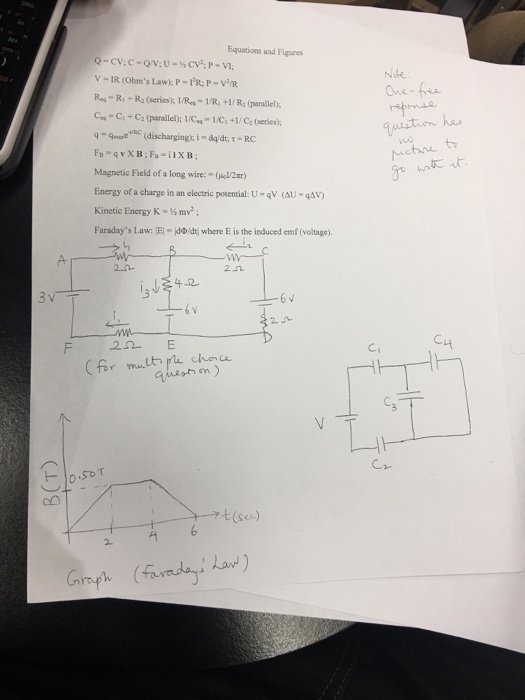 Equations and Figures
Q = CV; C = Q/V; U = ½ CV²; P = VI;
V = IR (Ohm's Law); P = I²R; P = V²/R
Req = R₁ + R₂ (series); 1/Req = 1/R₁ +1/ R₂ (parallel);
Ceq = C₁ + C₂ (parallel); 1/Ceq = 1/C₁ +1/ C₂ (series);
(discharging); i = dq/dt; τ = RC
F_B = q v X B ; F_B = i l X B ;
Magnetic Field of a long wire: = (μ₀I/2πr)
Energy of a charge in an electric potential: U = qV (ΔU = qΔV)
Kinetic Energy K = ½ mv² ;
Faraday's Law: |E| = |dΦ/dt| where E is the induced emf (voltage).
Note:
One-free
reponse
question has
no
picture to
go with it.
A
i₁
2Ω
B
i₂
2Ω
C
3V
i₃
4Ω
6V
6V
2Ω
i₁
F
2Ω
E
D
(for multiple choice
question)
C₁
C₄
C₃
V
C₂
B (T)
0.50T
2
4
6
t (sec)
Graph (Faraday's Law)